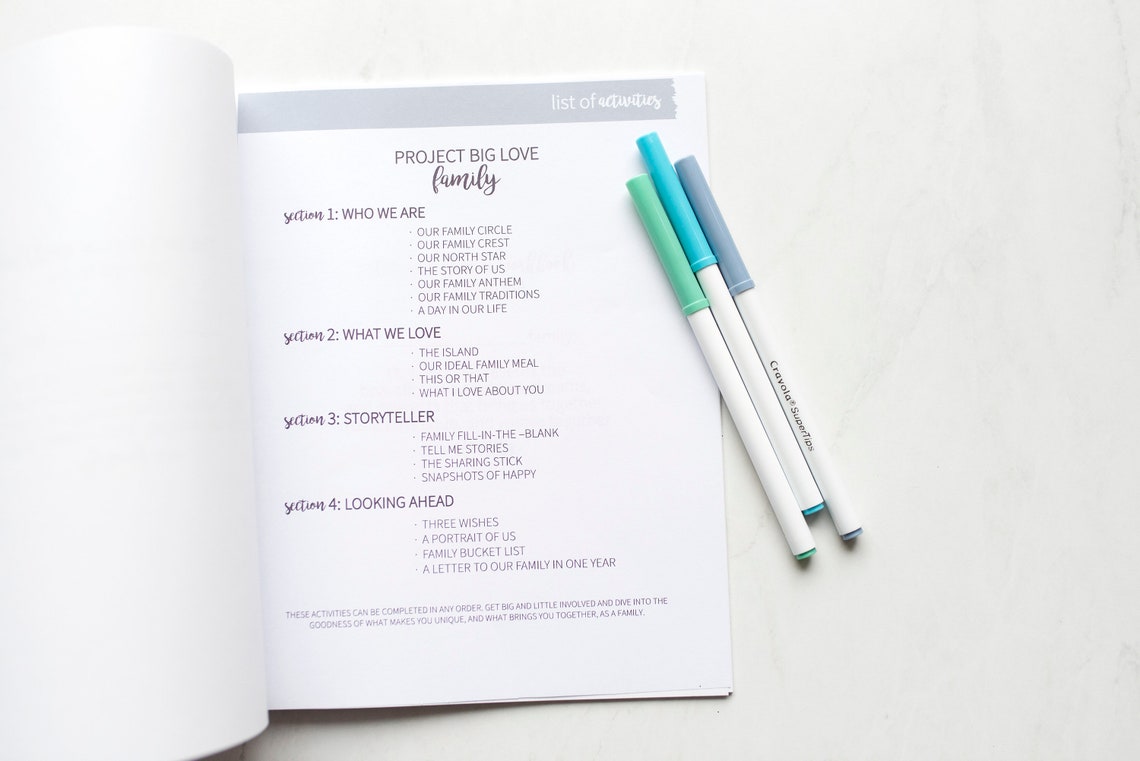 list of activities
PROJECT BIG LOVE
family
section 1: WHO WE ARE
· OUR FAMILY CIRCLE
· OUR FAMILY CREST
· OUR NORTH STAR
· THE STORY OF US
· OUR FAMILY ANTHEM
· OUR FAMILY TRADITIONS
· A DAY IN OUR LIFE
section 2: WHAT WE LOVE
· THE ISLAND
· OUR IDEAL FAMILY MEAL
· THIS OR THAT
· WHAT I LOVE ABOUT YOU
section 3: STORYTELLER
· FAMILY FILL-IN-THE –BLANK
· TELL ME STORIES
· THE SHARING STICK
· SNAPSHOTS OF HAPPY
section 4: LOOKING AHEAD
· THREE WISHES
· A PORTRAIT OF US
· FAMILY BUCKET LIST
· A LETTER TO OUR FAMILY IN ONE YEAR
THESE ACTIVITIES CAN BE COMPLETED IN ANY ORDER. GET BIG AND LITTLE INVOLVED AND DIVE INTO THE
GOODNESS OF WHAT MAKES YOU UNIQUE, AND WHAT BRINGS YOU TOGETHER, AS A FAMILY.
Crayola® SuperTips